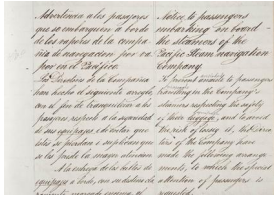 Advertencia a los pasajeros
que se embarquen a bordo
de los vapores de la compa
ñia de navegacion por va
por en el Pacifico.
Los Directores de la Compañia
han hecho el siguiente arreglo,
con el fin de tranquilizar a los
pasajeros respecto a la seguridad
de sus equipajes, i de evitar que
estos se pierdan i suplican que
se les preste la mayor atencion
A la entrega de los bultos de
equipaje a bordo,
Notice to passengers
embarking on board
the steamers of the
Pacific Steam navigation
Company.
To prevent to passengers
travelling in the Company's
steamers respecting the safety
of their luggage, and to avoid
the risk of losing it, the Direc
tors of the Company have
made the following arrange
ments, to which the
attention of passengers is
requested.